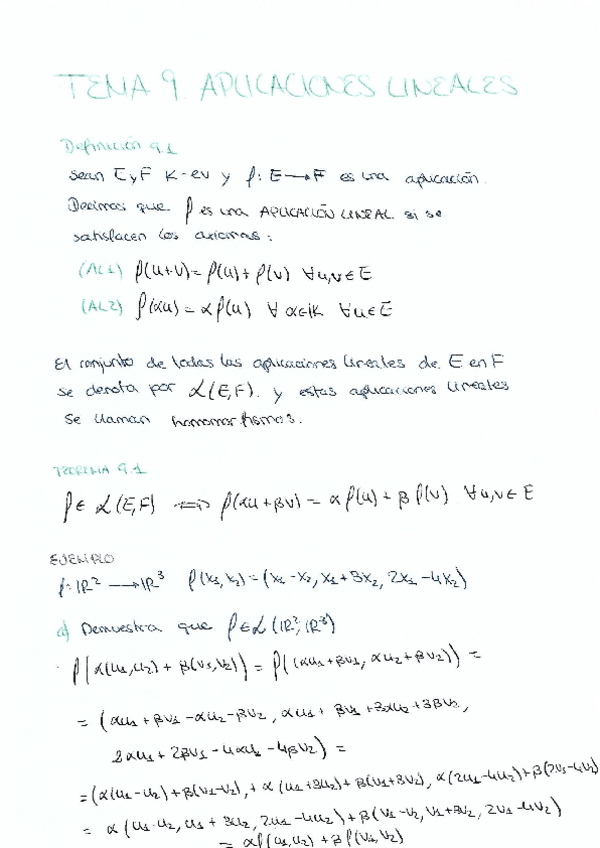 TEMA 9. APLICACIONES LINEALES
Definición 9.1
Sean E y F K-ev y f: E → F es una aplicación.
Decimos que f es una APLICACIÓN LINEAL si se
satisfacen los axiomas:
(AL1) f(u+v) = f(u) + f(v) ∀u,v ∈ E
(AL2) f(αu) = α f(u) ∀ α∈K ∀u∈E
El conjunto de todas las aplicaciones lineales de E en F
se denota por L(E,F). y estas aplicaciones lineales
se llaman homomorfismos.
TEOREMA 9.1
f ∈ L(E,F) ⟺ f(αu + βv) = α f(u) + β f(v) ∀u,v ∈ E
EJEMPLO
f: ℝ² → ℝ³ f(x₁, x₂) = (x₁ - x₂, x₁ + 3x₂, 2x₁ - 4x₂)
a) Demuestra que f ∈ L(ℝ², ℝ³)
f(α(u₁,u₂) + β(v₁,v₂)) = f((αu₁+βv₁, αu₂+βv₂)) =
= (αu₁ + βv₁ - αu₂ - βv₂, αu₁ + βv₁ + 3αu₂ + 3βv₂,
2αu₁ + 2βv₁ - 4αu₂ - 4βv₂) =
= (α(u₁-u₂) + β(v₁-v₂), + α(u₁+3u₂) + β(v₁+3v₂), α(2u₁-4u₂) + β(2v₁-4v₂)
= α(u₁-u₂, u₁+3u₂, 2u₁-4u₂) + β(v₁-v₂, v₁+3v₂, 2v₁-4v₂)
= αf(u₁,u₂) + βf(v₁,v₂)